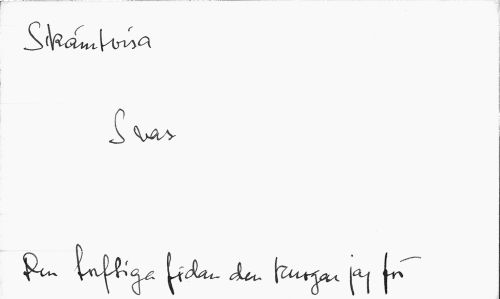 Skämtvisa
Svar
Den luftiga sidan den klurgar jag för